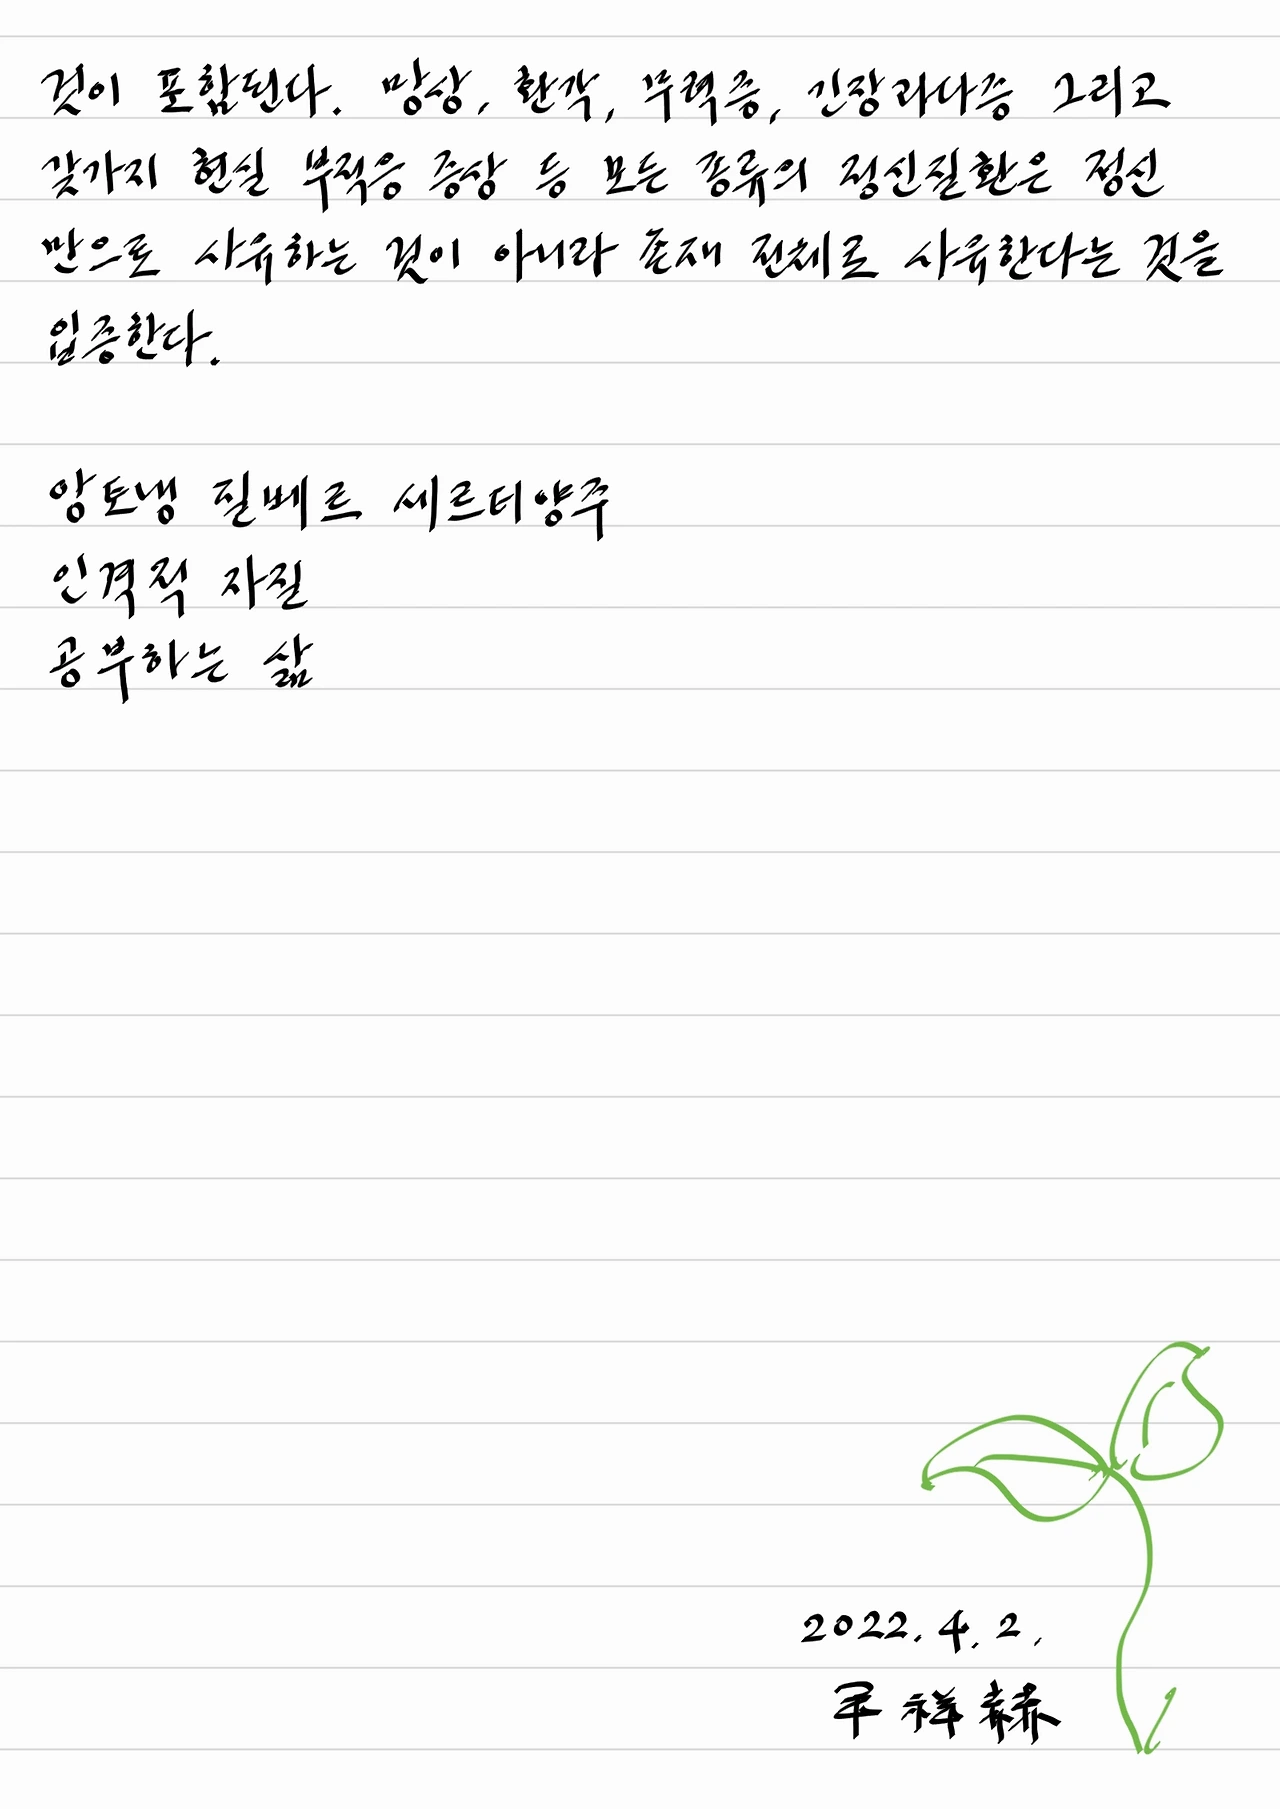 것이 포함된다. 망상, 환각, 무력증, 긴장과다증 그리고
갖가지 현실 부적응 증상 등 모든 종류의 정신질환은 정신
만으로 사유하는 것이 아니라 존재 전체로 사유한다는 것을
입증한다.
앙토냉 질베르 세르티양주
인격적 자질
공부하는 삶
2022. 4. 2.
祥赫